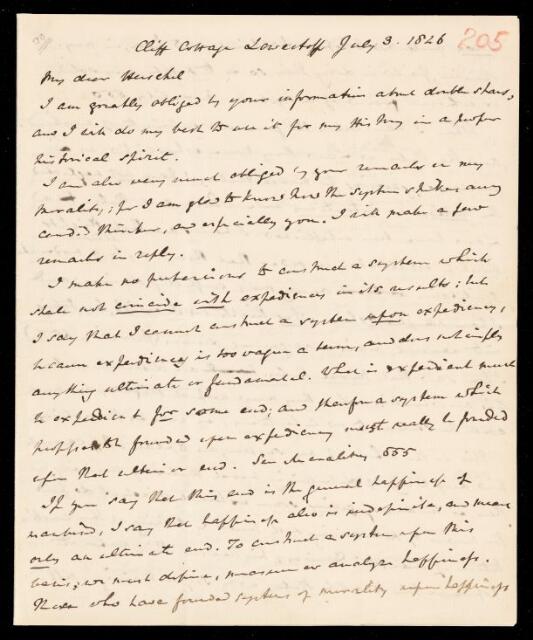 Cliff Cottage Lowestoft July 3. 1846 205
My dear Herschel
I am greatly obliged by your information about double stars,
and I will do my best to use it for my History in a proper
historical spirit.
I am also very much obliged by your remarks on my
Morality; for I am glad to know how the system strikes any
candid thinker, and especially you. I will make a few
remarks in reply.
I make no pretensions to construct a system which
shall not coincide with expediency in its results; but
I say that I cannot construct a system upon expediency,
because expediency is too vague a term, and does not imply
anything ultimate or fundamental. What is expedient must
be expedient for some end; and therefore a system which
professes to be founded upon expediency must really be founded
upon that ulterior end. See Morality 555
If you say that this end is the general happiness of
mankind, I say that happiness also is indefinite, and means
only an ultimate end. To construct a system upon this
basis, we must define, measure or analyze happiness.
Those who have founded systems of morality upon happiness